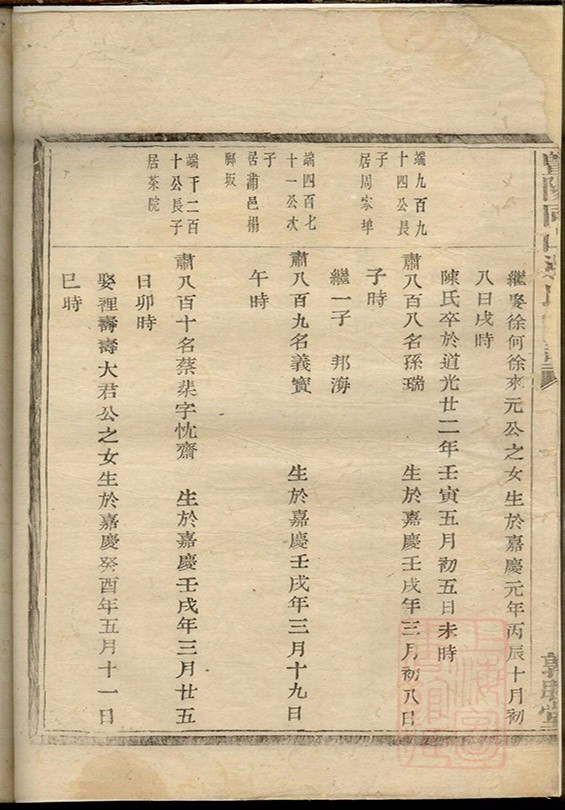 繼娶徐何徐來元公之女生於嘉慶元年丙辰十月初
八日戌時
陳氏卒於道光廿二年壬寅五月初五日未時
端九百九
十四公長
子
居周家埠
肅八百八名孫瑞 生於嘉慶壬戌年三月初八日
子時
繼一子 邦海
端四百七
十一公次
子
居蕭邑楊
坂
肅八百九名義寶 生於嘉慶壬戌年三月十九日
午時
端千二百
十公長子
居茶院
肅八百十名蔡棐字忱齋 生於嘉慶壬戌年三月廿五
日卯時
娶裡壽壽大君公之女生於嘉慶癸酉年五月十一日
巳時